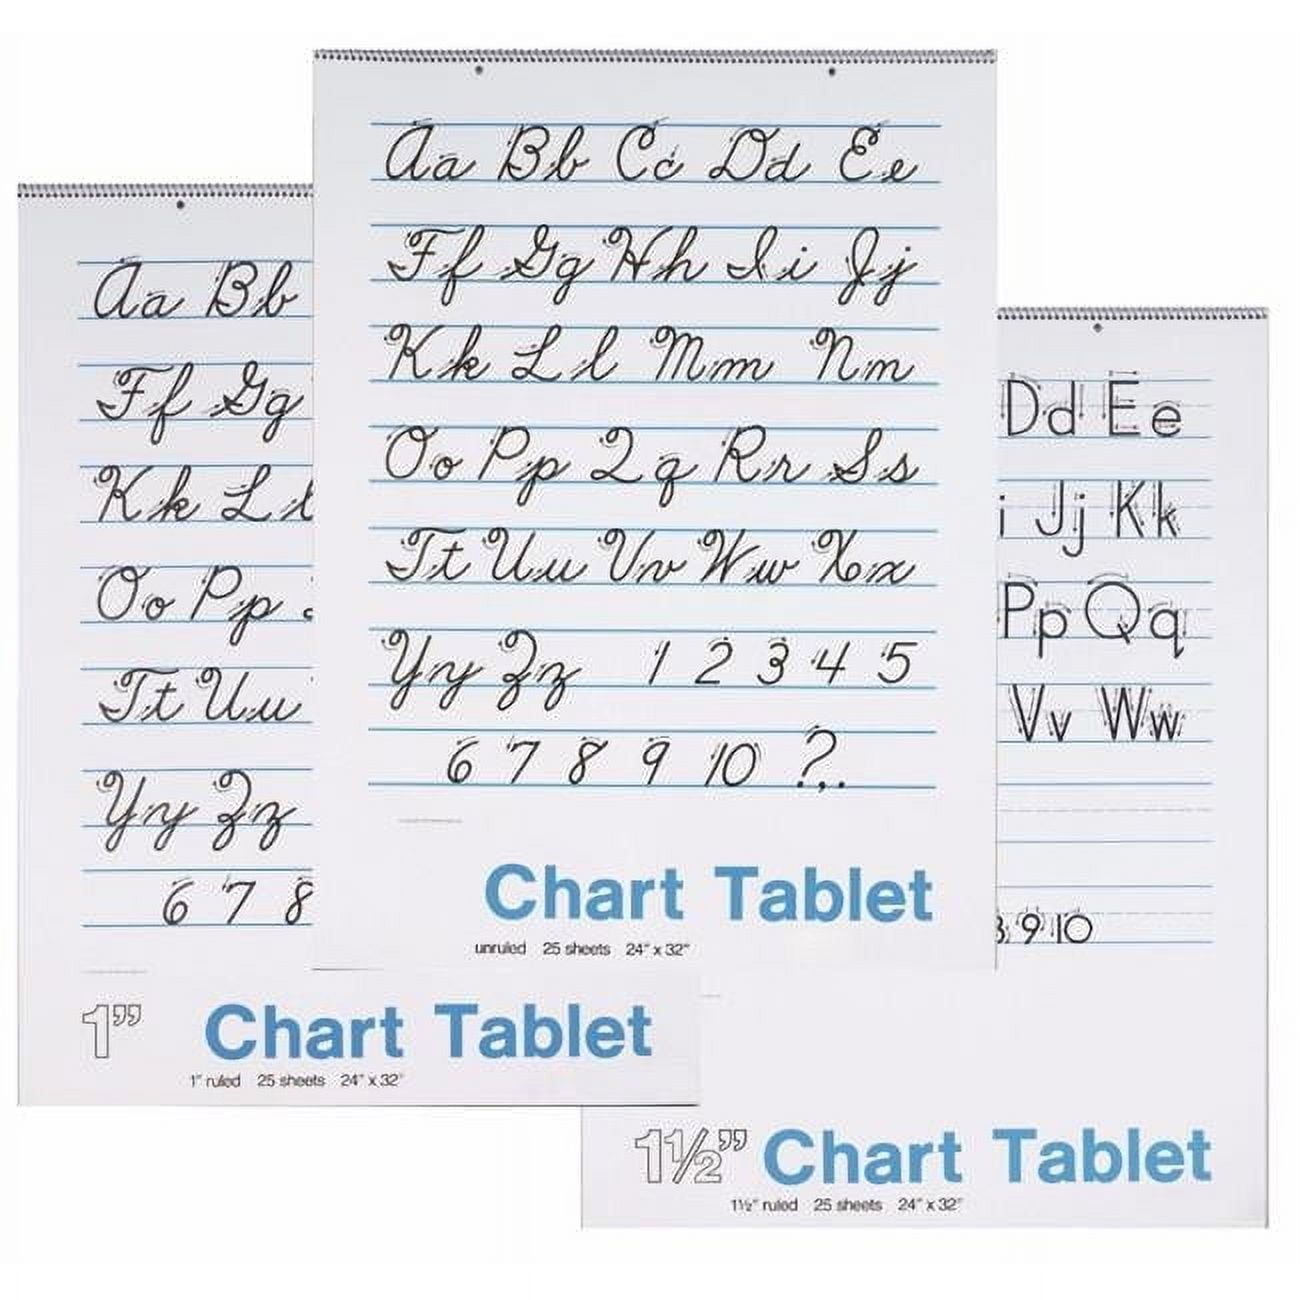 Aa Bb Cc Dd Ee
Ff Gg Hh Ii Jj
Kk Ll Mm Nn
Oo Pp Qq Rr Ss
Tt Uu Vv Ww Xx
Yy Zz 1 2 3 4 5
6 7 8 9 10 ? , .
Chart Tablet
unruled 25 sheets 24" x 32"
Aa Bb
Ff Gg
Kk Ll
Oo Pp
Tt Uu
Yy Zz
6 7 8
1" Chart Tablet
1" ruled 25 sheets 24" x 32"
Dd Ee
i Jj Kk
Pp Qq
Vv Ww
8 9 10
1½" Chart Tablet
1½" ruled 25 sheets 24" x 32"